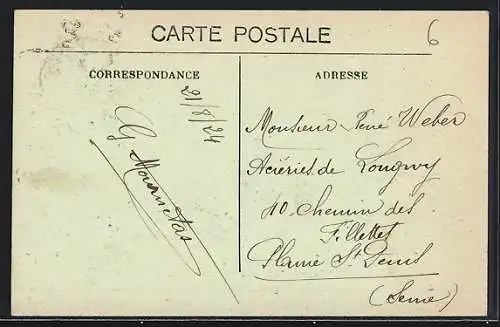 CARTE POSTALE
6
CORRESPONDANCE
ADRESSE
21/8/24
Monsieur René Weber
Aciéries de Longwy
40 Chemin des
Fillettes
Plaine St Denis
(Seine)